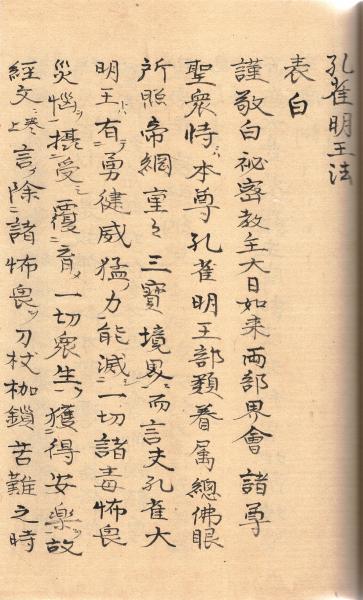 孔雀明王法
表白
謹敬白祕密教主大日如来両部界會諸尊
聖衆恃本尊孔雀明王部類眷属總佛眼
所照帝網重々三寶境界而言夫孔雀大
明王有勇健威猛力能滅一切諸毒怖畏
災惱攝受覆育一切衆生獲得安樂故
經文言除諸怖畏刀杖枷鎖苦難之時